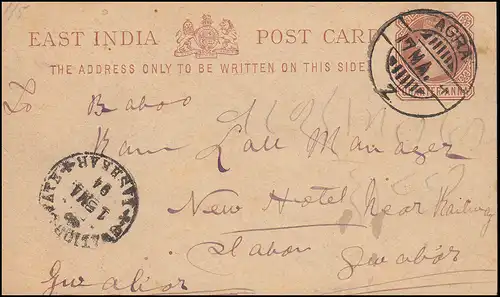 EAST INDIA POST CARD
THE ADDRESS ONLY TO BE WRITTEN ON THIS SIDE
AGRA
17 MA
QUARTER ANNA
To Baboo
Ram Lall Manager
New Hotel Near Railway
Gwalior
Gwalior
LASHKAR
94